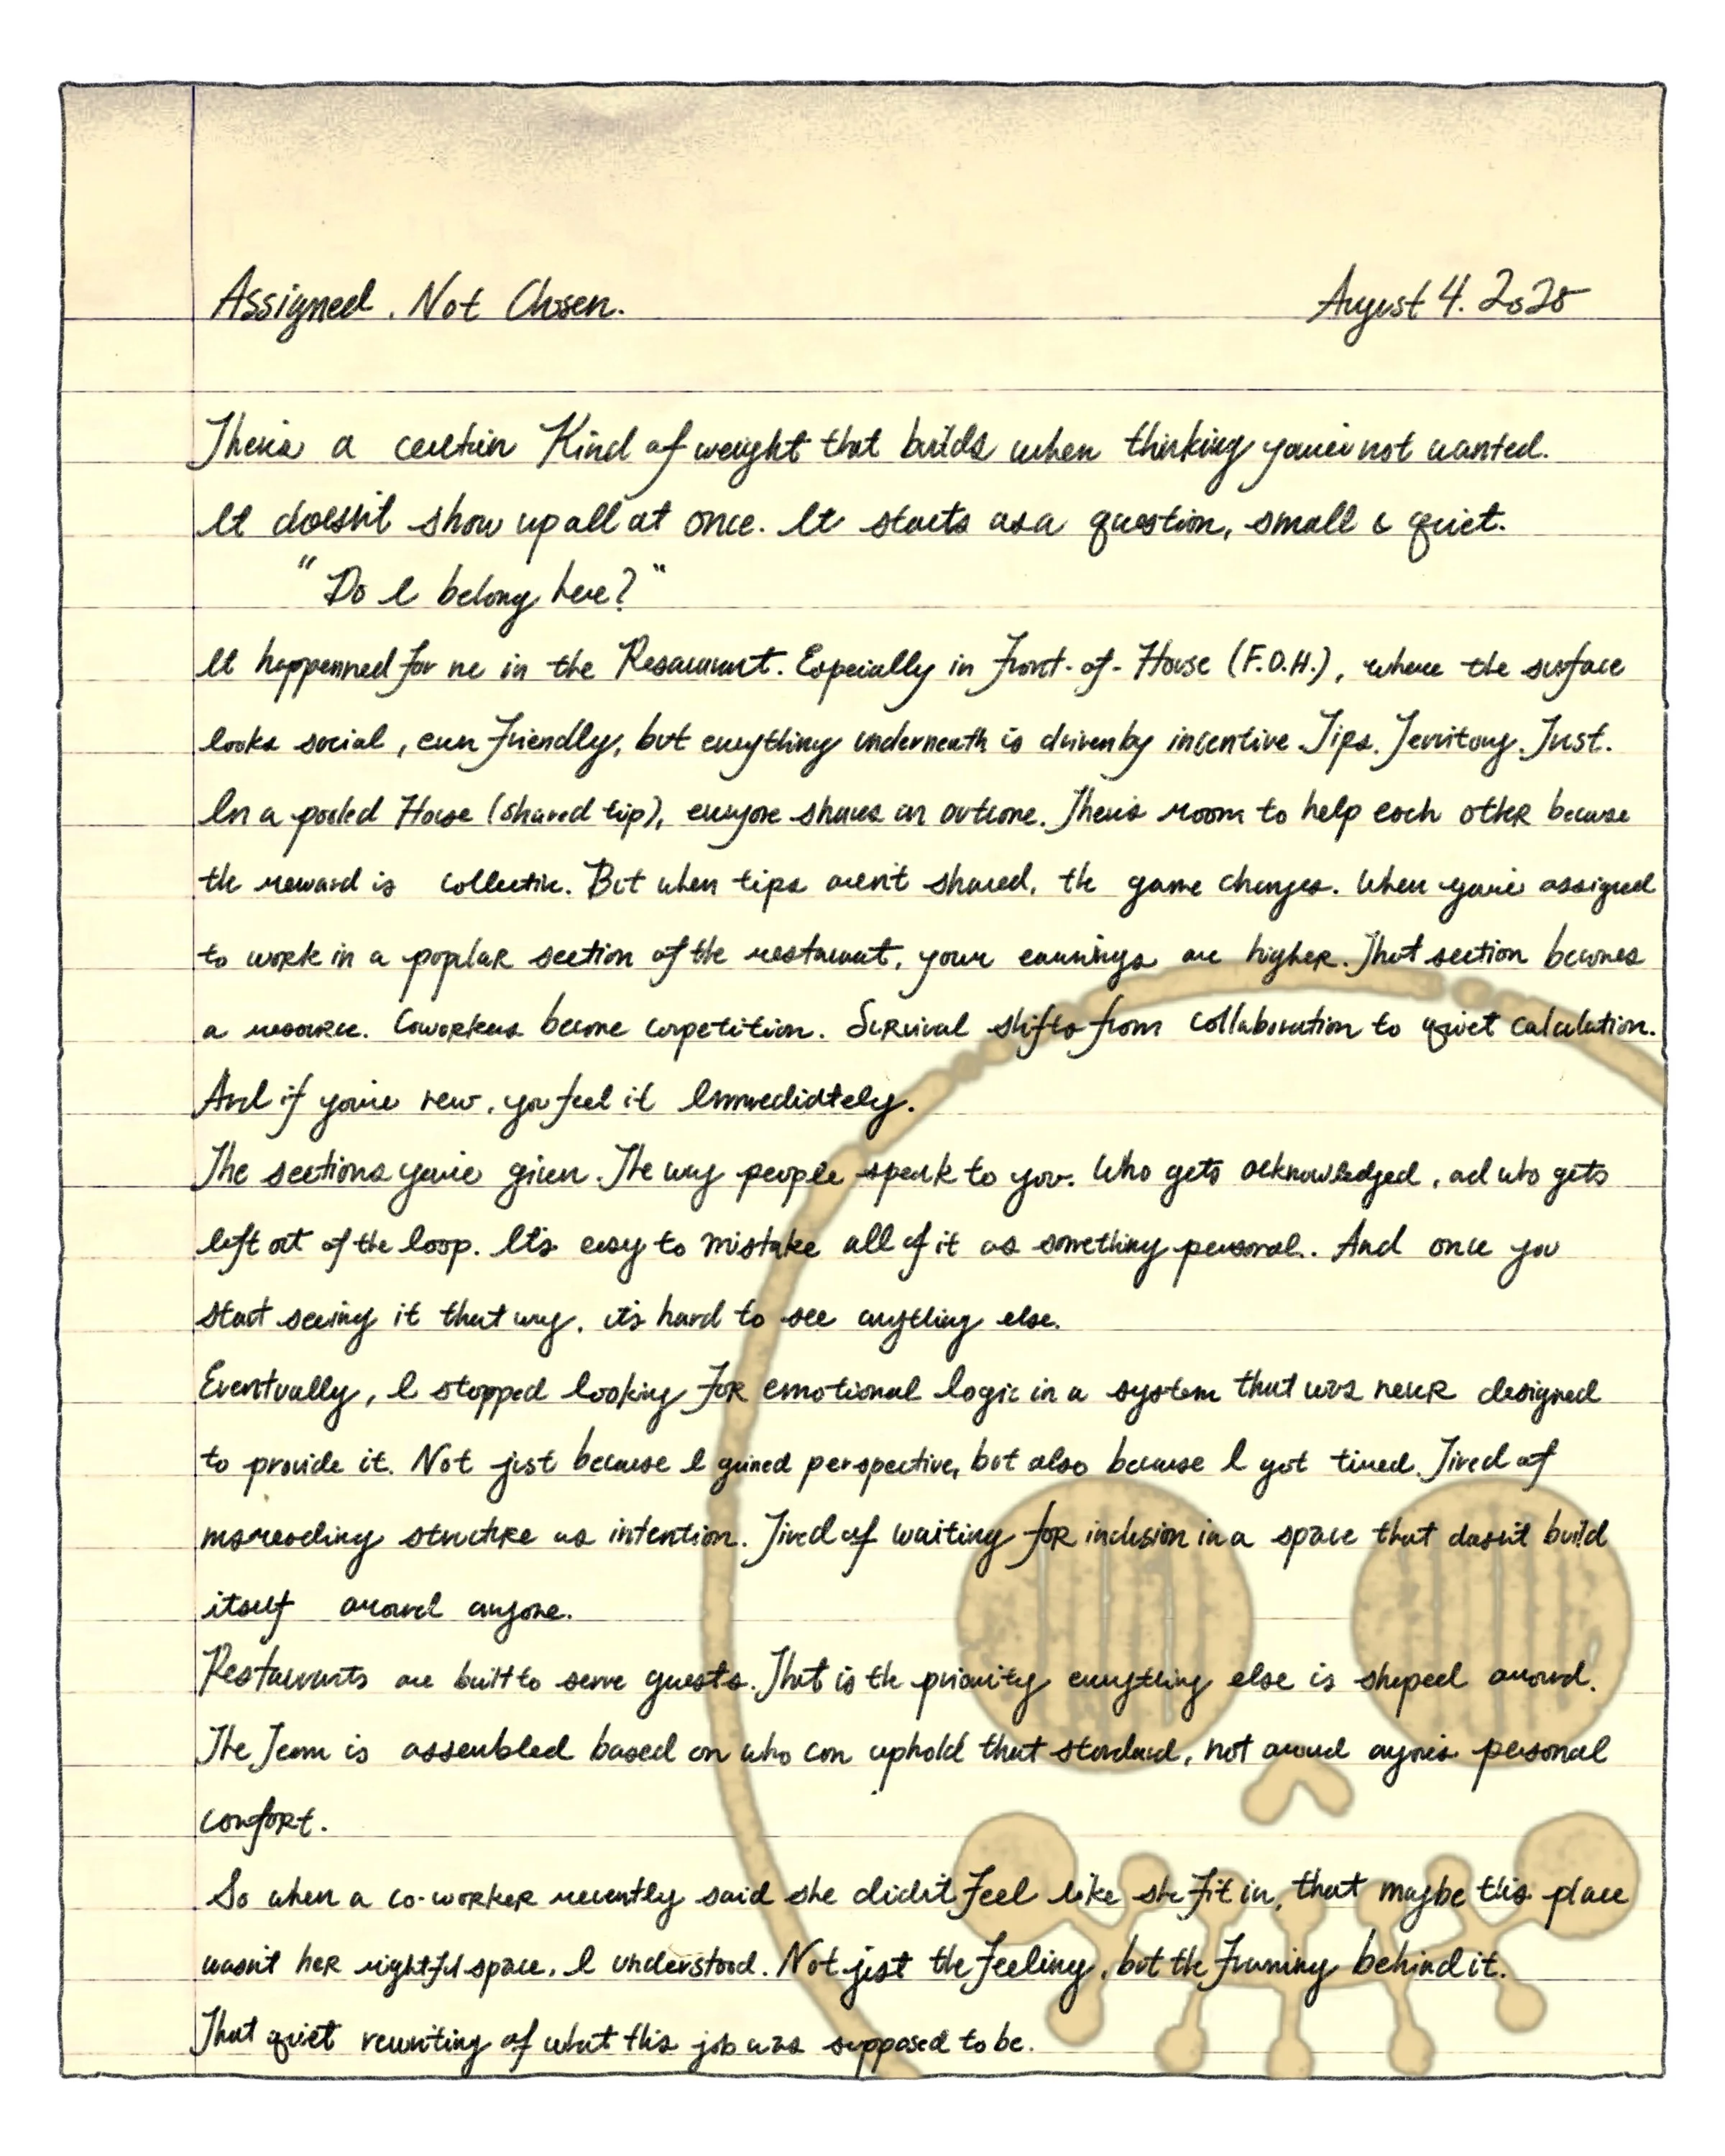 Assigned. Not Chosen. August 4. 2025
There's a certain Kind of weight that builds when thinking you're not wanted.
It doesn't show up all at once. It starts as a question, small & quiet.
"Do I belong here?"
It happenned for me in the Resaurant. Especially in Front-of-House (F.O.H.), where the surface
looks social, even friendly, but everything underneath is driven by incentive Tips. Territory. Trust.
In a pooled House (shared tip), everyone shares an outcome. There's room to help each other because
the reward is collective. But when tips aren't shared, the game changes. When you're assigned
to work in a popular section of the restaurant, your earnings are higher. That section becomes
a resource. Coworkers become competition. Survival shifts from collaboration to quiet calculation.
And if you're new, you feel it Immediately.
The sections you're given. The way people speak to you. Who gets acknowledged, and who gets
left out of the loop. It's easy to mistake all of it as something personal. And once you
start seeing it that way, it's hard to see anything else.
Eventually, I stopped looking for emotional logic in a system that was never designed
to provide it. Not just because I gained perspective, but also because I got tired. Tired of
misreading structure as intention. Tired of waiting for inclusion in a space that doesn't build
itself around anyone.
Restaurants are built to serve guests. That is the priority everything else is shaped around.
The Team is assembled based on who can uphold that standard, not around anyone's personal
comfort.
So when a co-worker recently said she didn't feel like she fit in, that maybe this place
wasn't her rightful space, I understood. Not just the feeling, but the framing behind it.
That quiet rewriting of what this job was supposed to be.